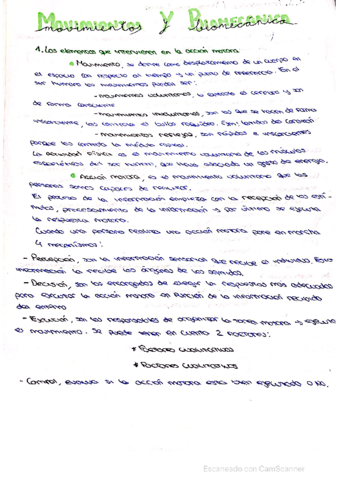 Movimientos Y Biomecánica
1. Los elementos que intervienen en la acción motora
Movimiento, se define como desplazamiento de un cuerpo en
el espacio con respecto al tiempo y un punto de referencia. En el
ser humano los movimientos pueden ser:
- movimientos voluntarios, lo ejecuta el cerebro y son
de forma consciente
- movimientos involuntarios, son los que se hacen de forma
inconsciente, los controla el bulbo raquídeo. Ejm: latidos del corazón
- movimientos reflejos, son rápidos e inconscientes
porque los controla la médula espinal.
La actividad física es el movimiento voluntario de los músculos
esqueléticos del ser humano, que lleva asociado un gasto de energía.
Acción motora, es el movimiento voluntario que las
personas somos capaces de realizar.
El proceso de la información empieza con la recepción de los estí-
mulos, procesamiento de la información y por último se ejecuta
la respuesta motora.
Cuando una persona realiza una acción motora pone en marcha
4 mecanismos:
- Percepción, son la información sensorial que recibe el individuo. Esta
información la recibe los órganos de los sentidos.
- Decisión, son los encargados de elegir la respuesta más adecuada
para ejecutar la acción motora en función de la información recibida
del entorno
- Ejecución, son los responsables de organizar la tarea motora y ejecuta
el movimiento. Se puede tener en cuenta 2 factores:
* Factores cuantitativos
* Factores cualitativos
- Control, evalua si la acción motora esta bien ejecutada o no.
Escaneado con CamScanner